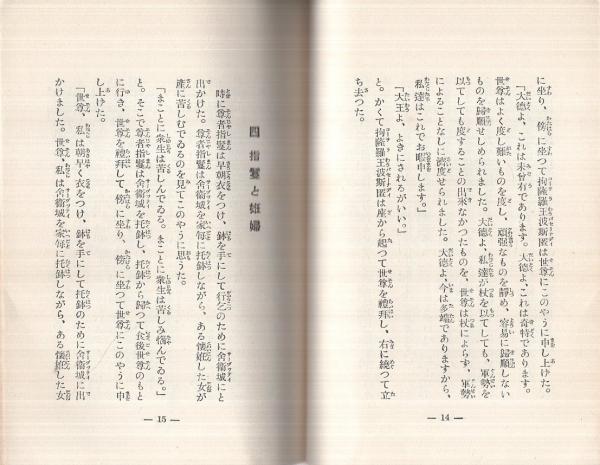 に坐り、傍に坐つて拘薩羅王波斯匿は世尊にこのやうに申し上げた。
「大德よ、これは未曾有であります。大德よ、これは奇特であります。
世尊はよく度し難いものを度し、頑强なものを靜め、容易に歸順しない
ものを歸順せしめられました。大德よ、私達が杖を以てしても、軍勢を
以てしても度することの出來なかつたものを、世尊は杖によらず、軍勢
によることなしに濟度せられました。大德よ、今は多端でありますから、
私達はこれでお暇申します。」
「大王よ、よきにされるがいい。」
と。かくて拘薩羅王波斯匿は座から起つて世尊を禮拜し、右に繞つて立
ち去つた。
— 14 —
四 指鬘と姙婦
時に尊者指鬘は早朝衣をつけ、鉢を手にして行乞のために舍衞城にと
出かけた。尊者指鬘は舍衞城を家每に托鉢しながら、ある懷姙した女が
產に苦しむでゐるのを見てこのやうに思うた。
「まことに衆生は苦しんでゐる。まことに衆生は苦しみ惱んでゐる。」
と。そこで尊者指鬘は舍衞城を托鉢し、托鉢から歸つて食後世尊のもと
に行き、世尊を禮拜して、傍に坐り、傍に坐つて世尊にこのやうに申
し上げた。
「世尊、私は朝早く衣をつけ、鉢を手にして托鉢のために舍衞城に出
かけました。世尊、私は舍衞城を家每に托鉢しながら、ある懷姙した女
— 15 —